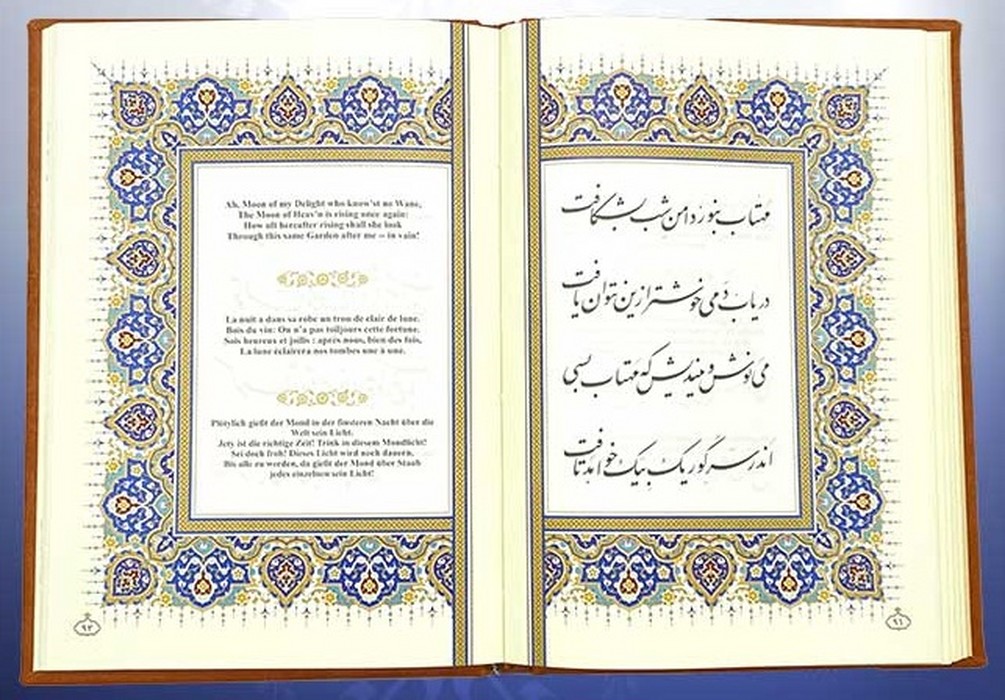 مهتاب بنور دامن شب بشکافت
دریاب دمی خوشتر ازین نتوان یافت
می نوش و میندیش که مهتاب بسی
اندر سر گور یک بیک خواهد تافت
۹۱
Ah, Moon of my Delight who know'st no Wane,
The Moon of Heav'n is rising once again:
How oft hereafter rising shall she look
Through this same Garden after me -- in vain!
La nuit a dans sa robe un trou de clair de lune.
Bois du vin: On n'a pas toiljours cette fortune.
Sois heureux et joills : apres nous, bien des fois,
La lune éclairera nos tombes une à une.
Plötylich gießt der Mond in der finsteren Nacht über die
Welt sein Licht.
Jety ist die richtige Zeit! Trink in diesem Mondlicht!
Sei doch froh! Dieses Licht wird noch dauern,
Bis alle zu werden, da gießt der Mond über Staub
jedes einzelnen sein Licht!